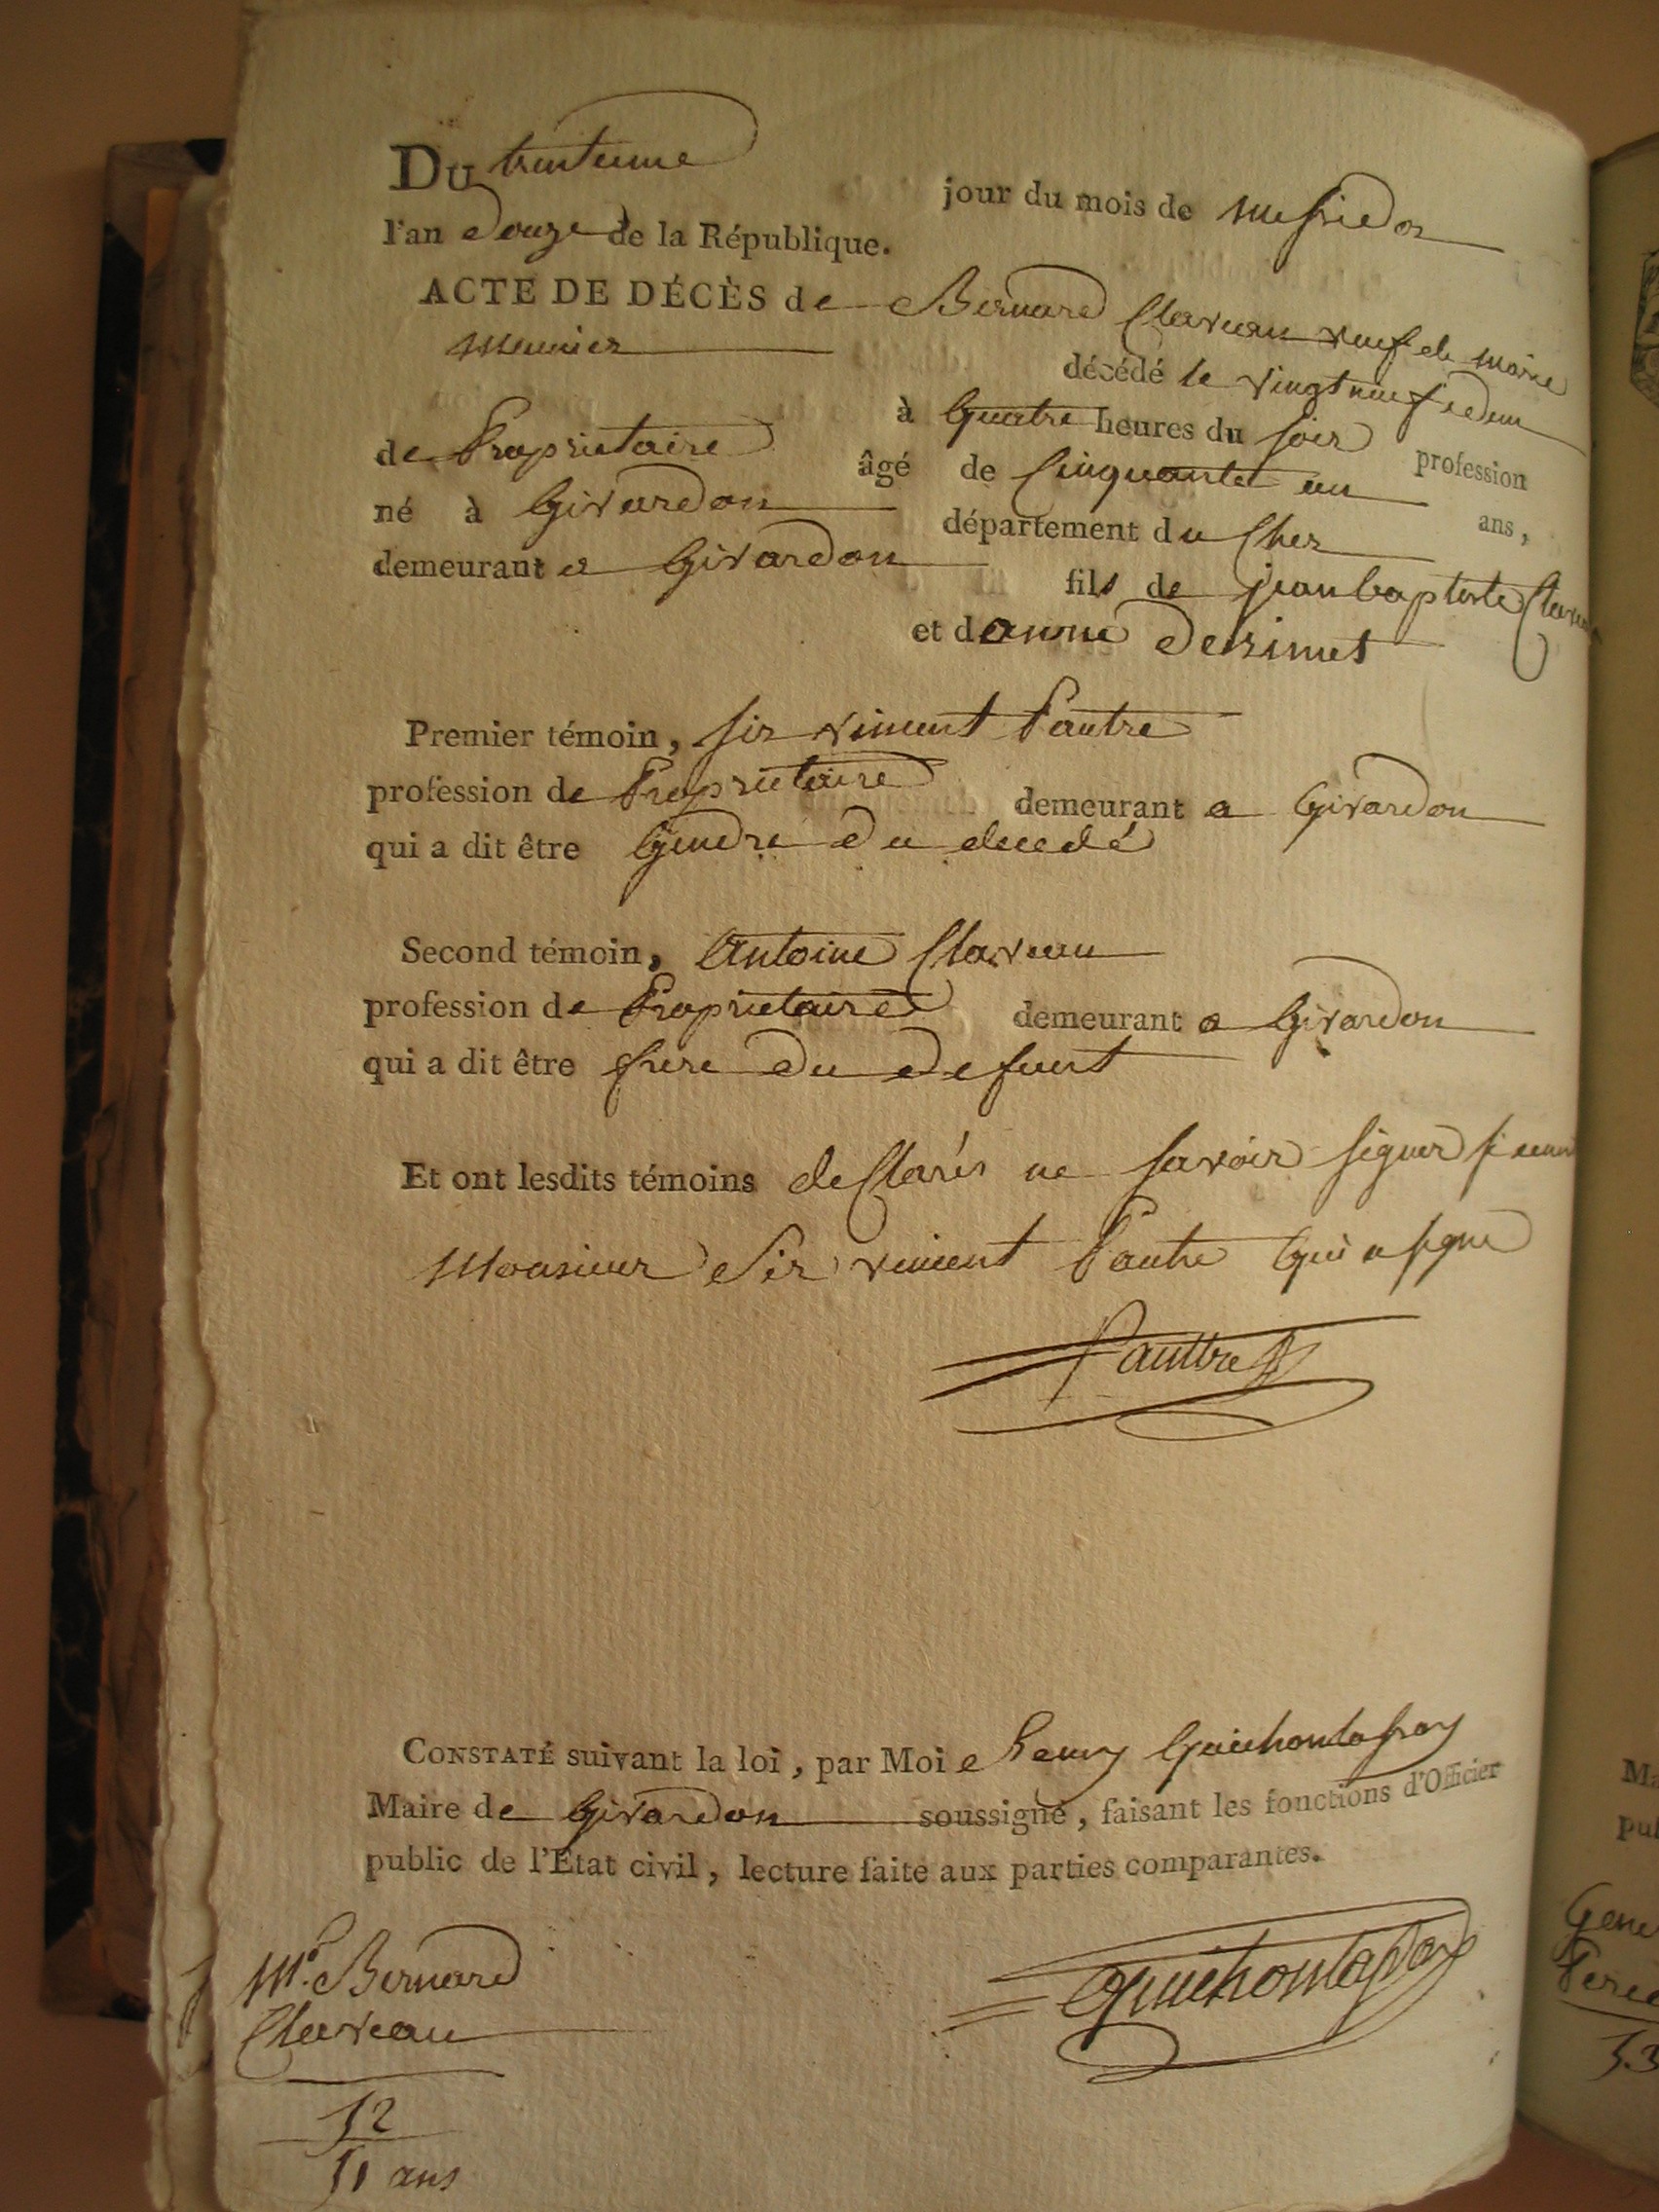 Du trentieme jour du mois de messidor
l'an Douze de la République.
ACTE DE DÉCÈS de Bernard Claveau veuf de marie
meunier décédé le vingt neuf
à quatre heures du soir profession
de Proprietaire âgé de Cinquante un ans,
né à Givardon département du Cher
demeurant a Givardon fils de jean baptiste Claveau
et d anne
Premier témoin, sir vincent Pautre
profession de Proprietaire demeurant a Givardon
qui a dit être Gendre du decedé
Second témoin, Antoine Claveau
profession de Proprietaire demeurant a Givardon
qui a dit être frere du defunt
Et ont lesdits témoins declarés ne savoir signer
Monsieur Sir vincent Pautre qui a signe
Pauttre
CONSTATÉ suivant la loi, par Moi henry
Maire de Givardon soussigné, faisant les fonctions d'Officier
public de l'État civil, lecture faite aux parties comparantes.
Mr. Bernard
Claveau
52
51 ans